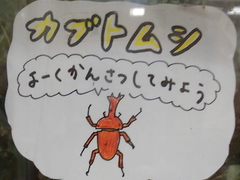 カブトムシ
よーくかんさつしてみよう